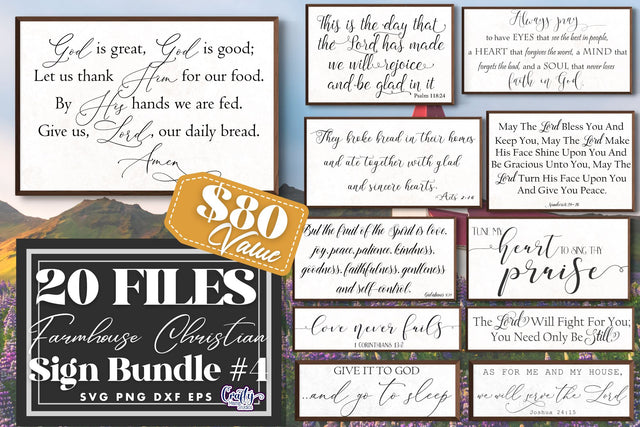 God is great, God is good;
Let us thank Him for our food.
By His hands we are fed.
Give us, Lord, our daily bread.
Amen
This is the day that
the Lord has made
we will rejoice
and be glad in it
Psalm 118:24
Always pray
to have EYES that see the best in people,
a HEART that forgives the worst, a MIND that
forgets the bad, and a SOUL that never loses
faith in God.
They broke bread in their homes
and ate together with glad
and sincere hearts.
Acts 2:46
May The Lord Bless You And
Keep You, May The Lord Make
His Face Shine Upon You And
Be Gracious Unto You, May The
Lord Turn His Face Upon You
And Give You Peace.
$80
Value
But the fruit of the Spirit is love,
joy, peace, patience, kindness,
goodness, faithfulness, gentleness
and self-control.
TUNE MY
heart
TO SING THY
praise
20 FILES
Farmhouse Christian
Sign Bundle #4
SVG PNG DXF EPS
Crafty
love never fails
1 CORINTHIANS 13:7
The Lord Will Fight For You;
You Need Only Be Still.
GIVE IT TO GOD
...and go to sleep
AS FOR ME AND MY HOUSE,
we will serve the Lord
Joshua 24:15